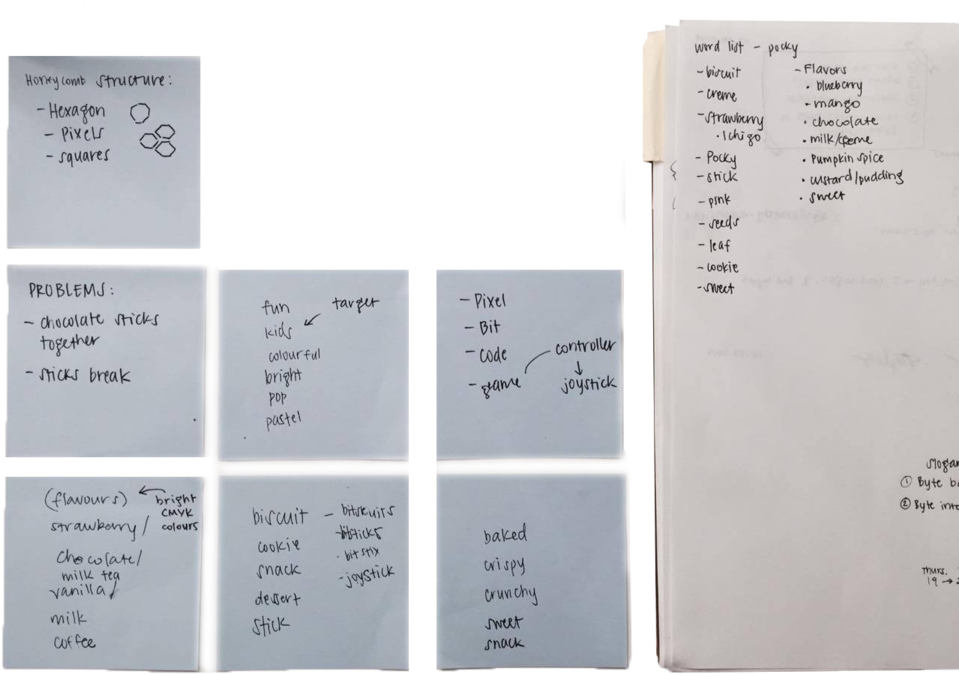 Honeycomb structure:
- Hexagon
- Pixels
- squares
PROBLEMS:
- chocolate sticks
together
- sticks break
fun
target
kids
colourful
bright
pop
pastel
- Pixel
- Bit
- Code
controller
- game
joystick
(flavours)
bright
CMYK
colours
strawberry/
chocolate/
milk tea
vanilla
milk
coffee
biscuit
- bitscuits
cookie
- bitsticks
snack
- bit stix
dessert
- joystick
stick
baked
crispy
crunchy
sweet
snack
word list - pocky
- biscuit
- creme
- strawberry
• Ichigo
- Pocky
- stick
- pink
- seeds
- leaf
- cookie
- sweet
- Flavors
• blueberry
• mango
• chocolate
• milk/creme
• Pumpkin spice
• custard/pudding
• sweet
① Byte
② Byte
Thurs.
19 →